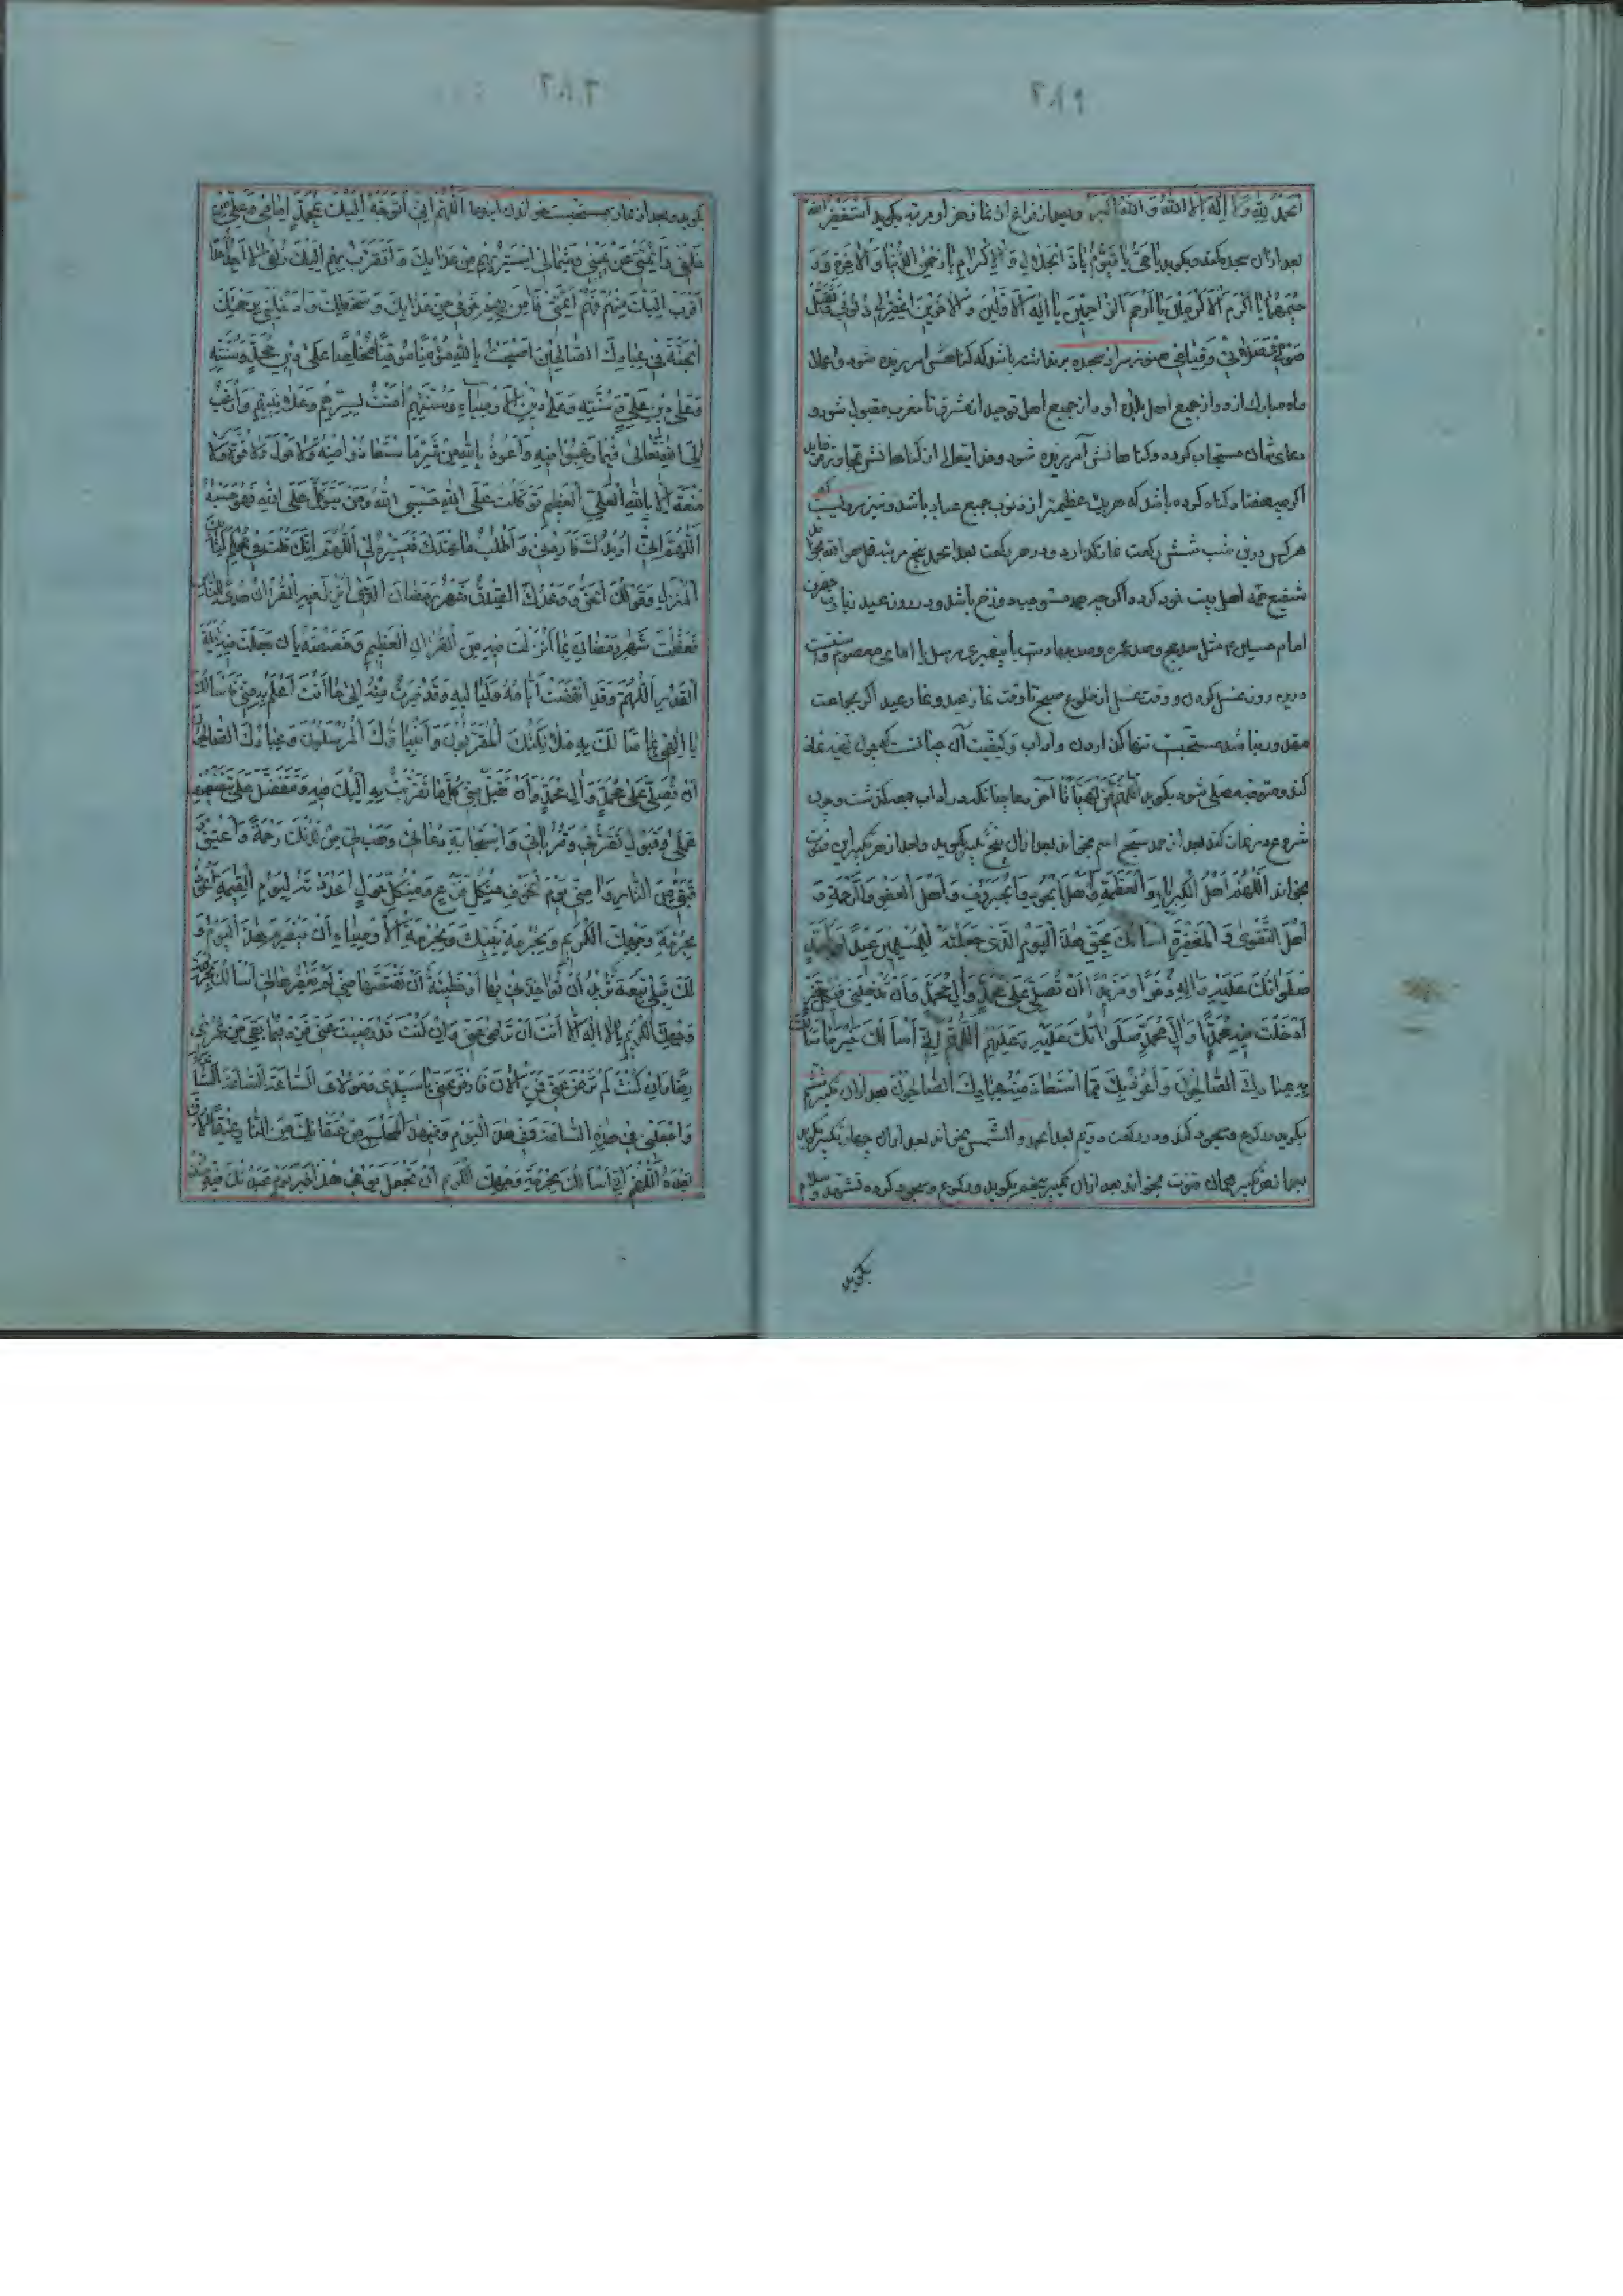 الحمد لله ولا اله الا الله والله اكبر وبعد از فراغ از نماز هزار مرتبه بگوید استغفر الله
بعد ازان سجده کند و بگوید یا حی یا قیوم یا ذا الجلال والاکرام یا رحمن الدنیا والآخرة و
رحیمهما یا اکرم الاکرمین یا ارحم الراحمین یا اله الاولین والآخرین اغفر لی ذنوبی وتقبل
صومی وصلوتی وقیامی هنوز سر از سجده بر نداشته باشد که گناهش امرزیده شود و اعمال
ماه مبارک از او و از جمیع اهل بلده او و از جمیع اهل توحید از مشرق تا مغرب مقبول شود و
دعای شان مستجاب کرده و گناهانش آمرزیده شود و خدایتعالی از گناهانش تجاوز فرماید
اگرچه هفتاد گناه کرده باشد که هریک عظیمتر از ذنوب جمیع عباد باشد و نیز
هرکس درین شب شش رکعت نماز گذارد و در هر رکعت بعد الحمد پنج مرتبه قل هو الله بخواند
شفیع همه اهل بیت خود کرده اگرچه همه مستوجب دوزخ باشد و در روز عید زیارت حضرت
امام حسین مثل صد حج و صد عمره و صد جهادست با پیغمبری مرسل یا امامی معصوم و سنتست
درین روز غسل کردن و وقت غسل از طلوع صبح تا وقت نماز عید و نماز عید اگر بجماعت
مقدور نباشد مستحبست تنها گذاردن و آداب و کیفیت آن چنانست که چون تهیه نماز
کند و متوجه مصلی شود بگوید اللهم من تهیأ تا آخر دعا چنانکه در آداب جمعه گذشت و چون
شروع در نماز کند بعد از حمد سبح اسم بخواند بعد ازان پنج تکبیر بگوید و بعد از هر تکبیر این قنوت
بخواند اللهم اهل الکبریاء والعظمة واهل الجود والجبروت واهل العفو والرحمة و
اهل التقوی والمغفرة اسألک بحق هذا الیوم الذی جعلته للمسلمین عیدا ولمحمد
صلواتک علیه وآله ذخرا ومزیدا ان تصلی علی محمد وآل محمد وان تدخلنی فی کل خیر
ادخلت فیه محمدا وآل محمد صلواتک علیه وعلیهم اللهم انی اسألک خیر ما سألک
به عبادک الصالحون واعوذ بک مما استعاذ منه عبادک الصالحون بعد ازان تکبیر ششم
بگوید و رکوع و سجود کند و در رکعت دویم بعد الحمد والشمس بخواند بعد ازان چهار تکبیر بگوید
بعد از هر تکبیر همان قنوت بخواند بعد ازان تکبیر پنجم بگوید و رکوع و سجود کرده تشهد و سلام
بگوید
بگوید و بعد از نماز مستحبست خواندن این دعا اللهم انی اتوجه الیک بمحمد امامی وعلی من
خلفی وائمتی عن یمینی وشمالی استتر بهم من عذابک واتقرب بهم الیک زلفی لا اجد احدا
اقرب الیک منهم فهم ائمتی فآمن بهم خوفی من عذابک وسخطک وادخلنی برحمتک
الجنة فی عبادک الصالحین اصبحت بالله مؤمنا موقنا مخلصا علی دین محمد وسنته
وعلی دین علی وسنته وعلی دین الاوصیاء وسنتهم آمنت بسرهم وعلانیتهم وارغب
الی الله تعالی فیما رغبوا فیه واعوذ بالله من شر ما استعاذوا منه ولا حول ولا قوة ولا
منعة الا بالله العلی العظیم توکلت علی الله حسبی الله ومن یتوکل علی الله فهو حسبه
اللهم انی اریدک فاردنی واطلب ما عندک فیسره لی اللهم انک قلت فی محکم کتابک
المنزل وقولک الحق ووعدک الصدق شهر رمضان الذی انزل فیه القرآن هدی للناس
فعظمت شهر رمضان بما انزلت فیه من القرآن العظیم وخصصته بأن جعلت فیه لیلة
القدر اللهم وقد انقضت ایامه ولیالیه وقد صرت منه الی ما انت اعلم به منی فاسألک
یا الهی بما سألک به ملائکتک المقربون وانبیاؤک المرسلون وعبادک الصالحون
ان تصلی علی محمد وآل محمد وان تقبل منی کل ما تقربت به الیک فیه وتتفضل علی بتضعیف
عملی وقبول تقربی وقرباتی واستجابة دعائی وهب لی من لدنک رحمة واعتق
رقبتی من النار وآمنی یوم الخوف من کل فزع ومن کل هول اعددته لیوم القیمة اعوذ
بحرمة وجهک الکریم وبحرمة نبیک وبحرمة الاوصیاء ان یتصرم هذا الیوم و
لک قبلی تبعة ترید ان تؤاخذنی بها او خطیئة ترید ان تقتصها منی لم تغفرها لی اسألک بحرمة
وجهک الکریم یا لا اله الا انت ان ترضی عنی وان کنت قد رضیت عنی فزد فیما بقی من عمری
رضا وان کنت لم ترض عنی فمن الآن فارض عنی یا سیدی ومولای الساعة الساعة الساعة
واجعلنی فی هذه الساعة وفی هذا الیوم وفی هذا المجلس من عتقائک من النار عتقا لا رق
بعده اللهم انی اسألک بحرمة وجهک الکریم ان تجعل یومی هذا خیر یوم عبدتک فیه